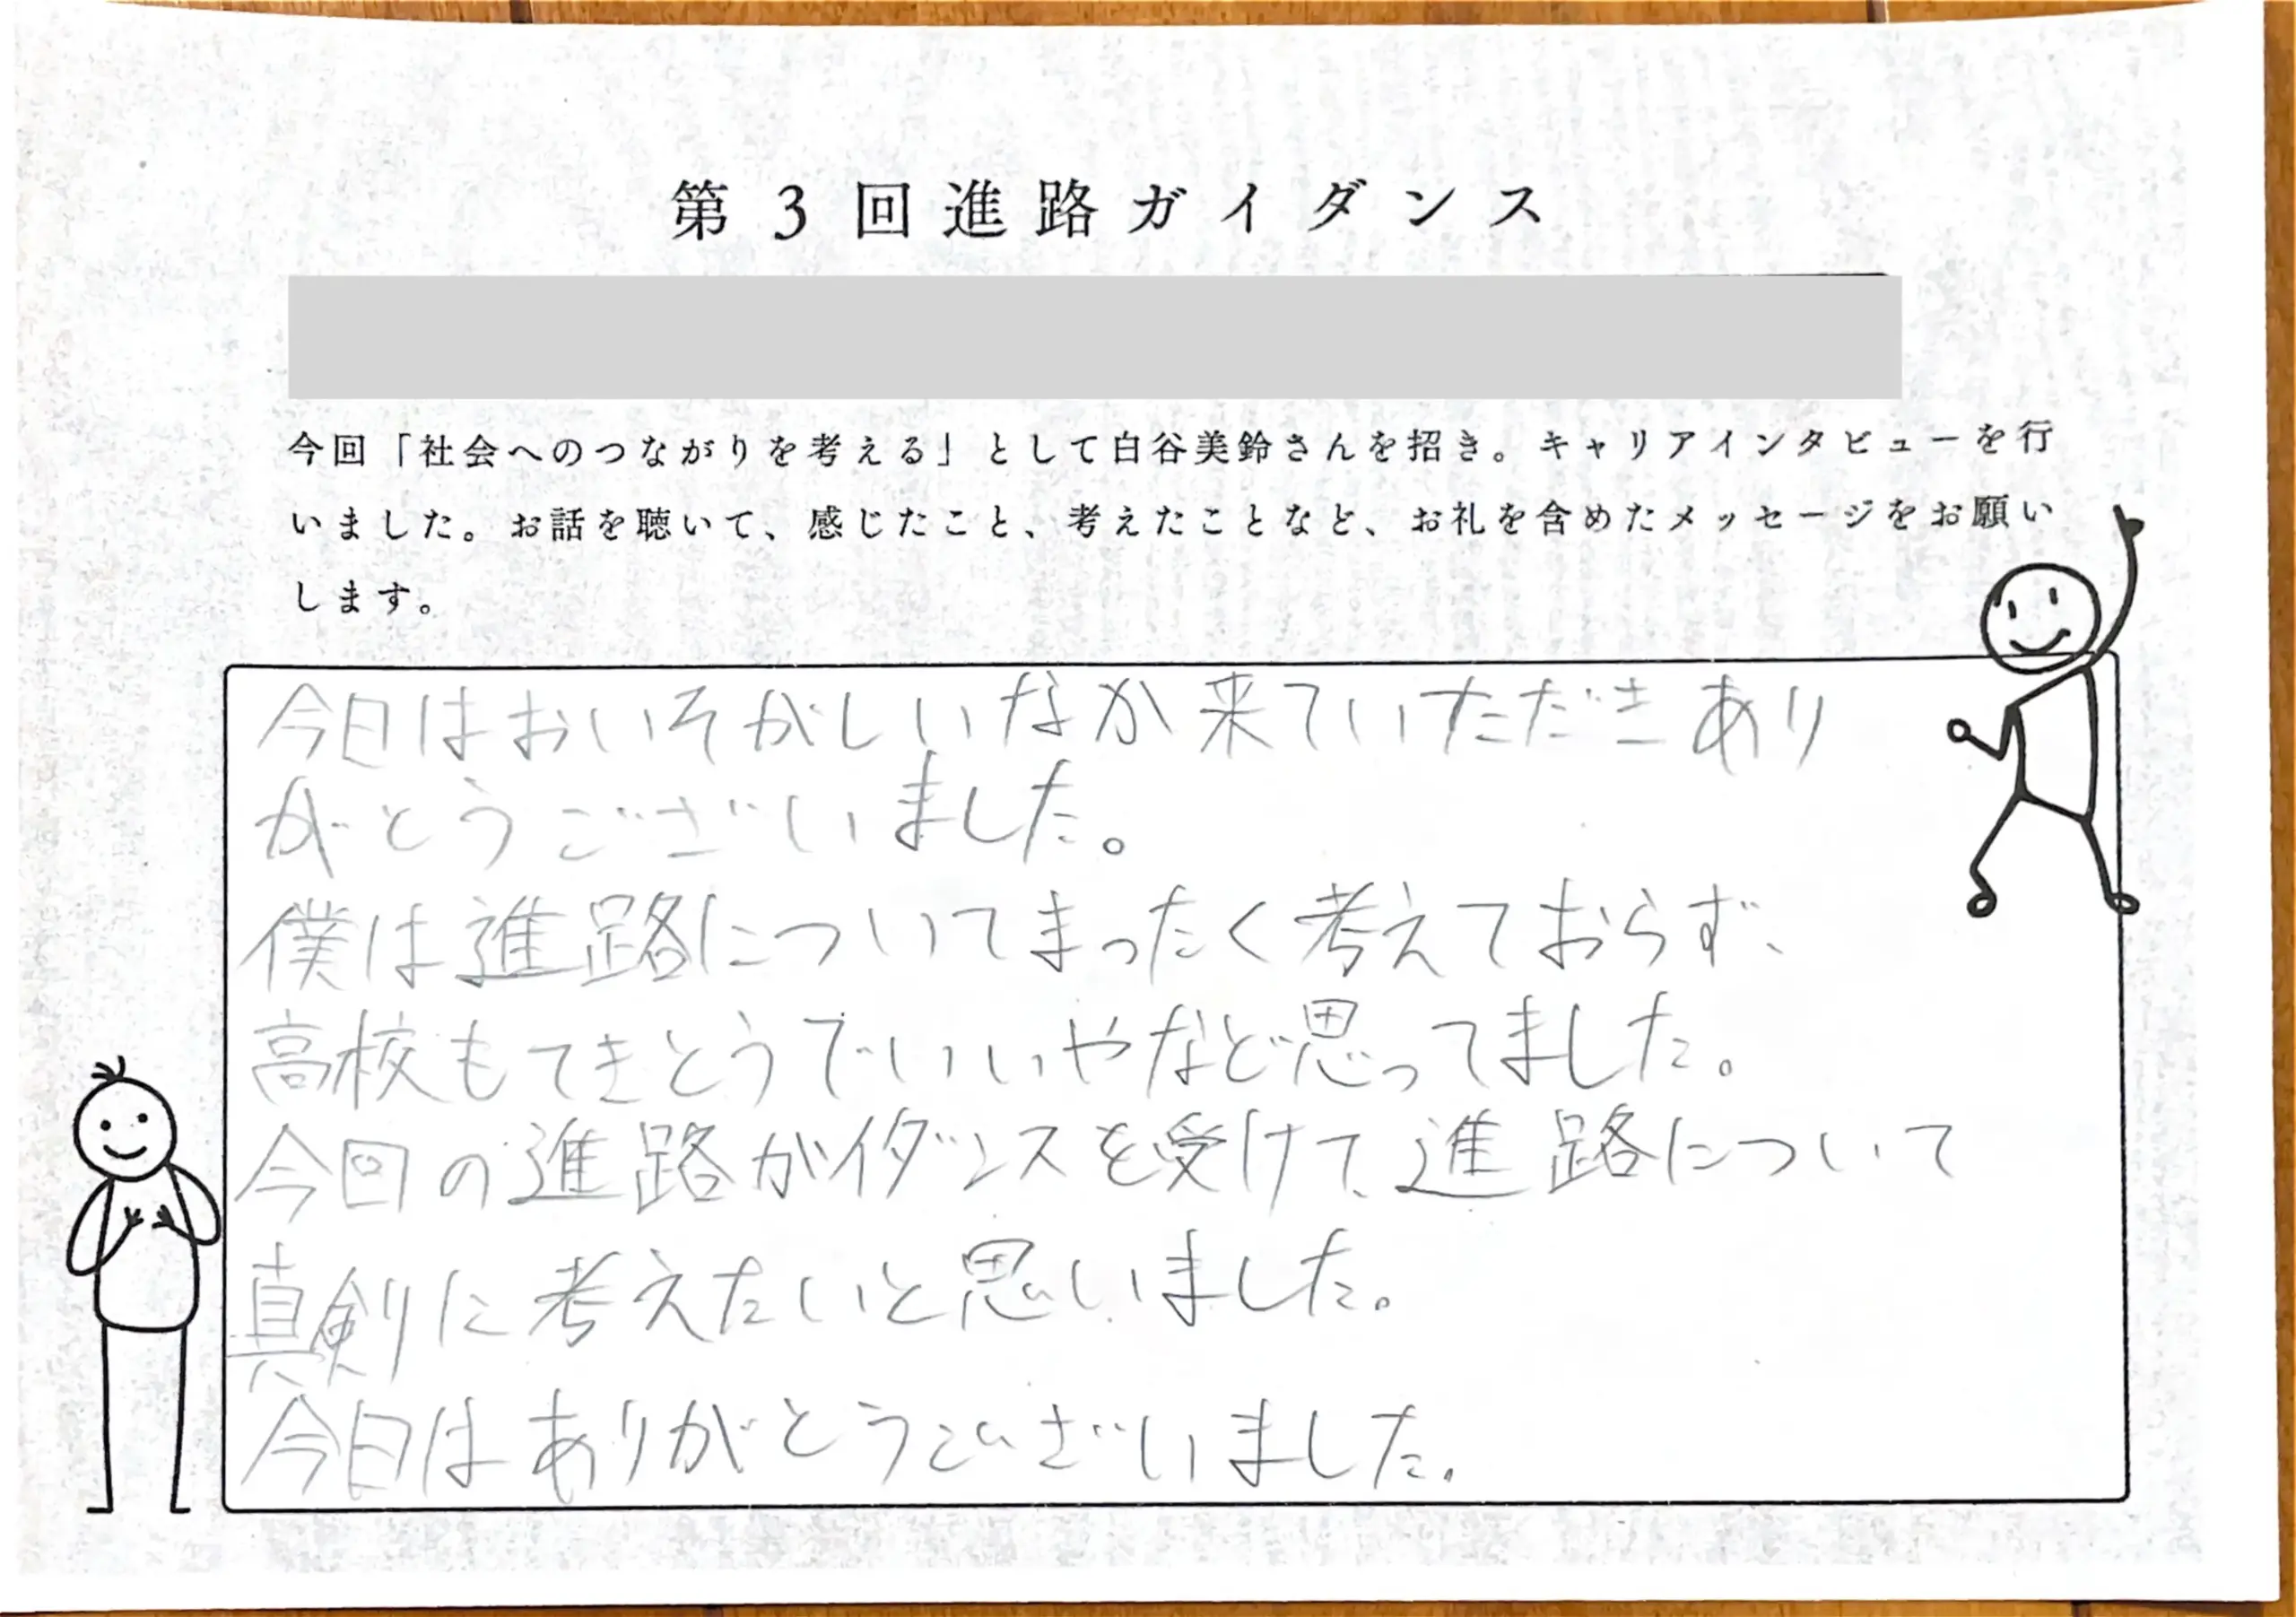 第3回進路ガイダンス
今回「社会へのつながりを考える」として白谷美鈴さんを招き。キャリアインタビューを行
いました。お話を聴いて、感じたこと、考えたことなど、お礼を含めたメッセージをお願い
します。
今日はおいそがしいなか来ていただきあり
がとうございました。
僕は進路についてまったく考えておらず、
高校もてきとうでいいやなど思ってました。
今回の進路ガイダンスを受けて、進路について
真剣に考えたいと思いました。
今日はありがとうございました。